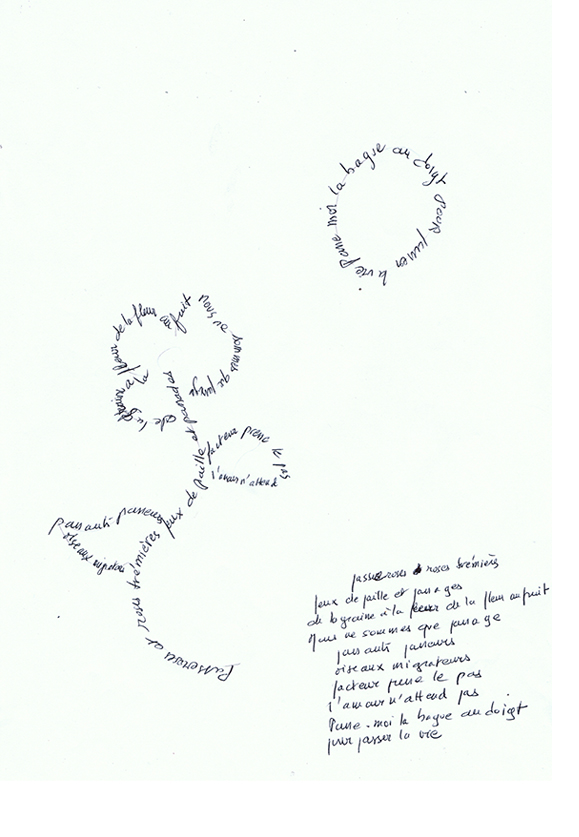 Passe moi la bague au doigt pour passer la vie
de la graine à la fleur de la fleur au fruit nous ne sommes que passage
facteur presse le pas
l'amour n'attend
passants passeurs
oiseaux migrateurs
Passeroses et roses trémières jeux de paille et passages
passeroses & roses trémières
jeux de paille et passages
de la graine à la fleur de la fleur au fruit
Nous ne sommes que passage
passants passeurs
oiseaux migrateurs
facteur presse le pas
l'amour n'attend pas
Passe-moi la bague au doigt
pour passer la vie